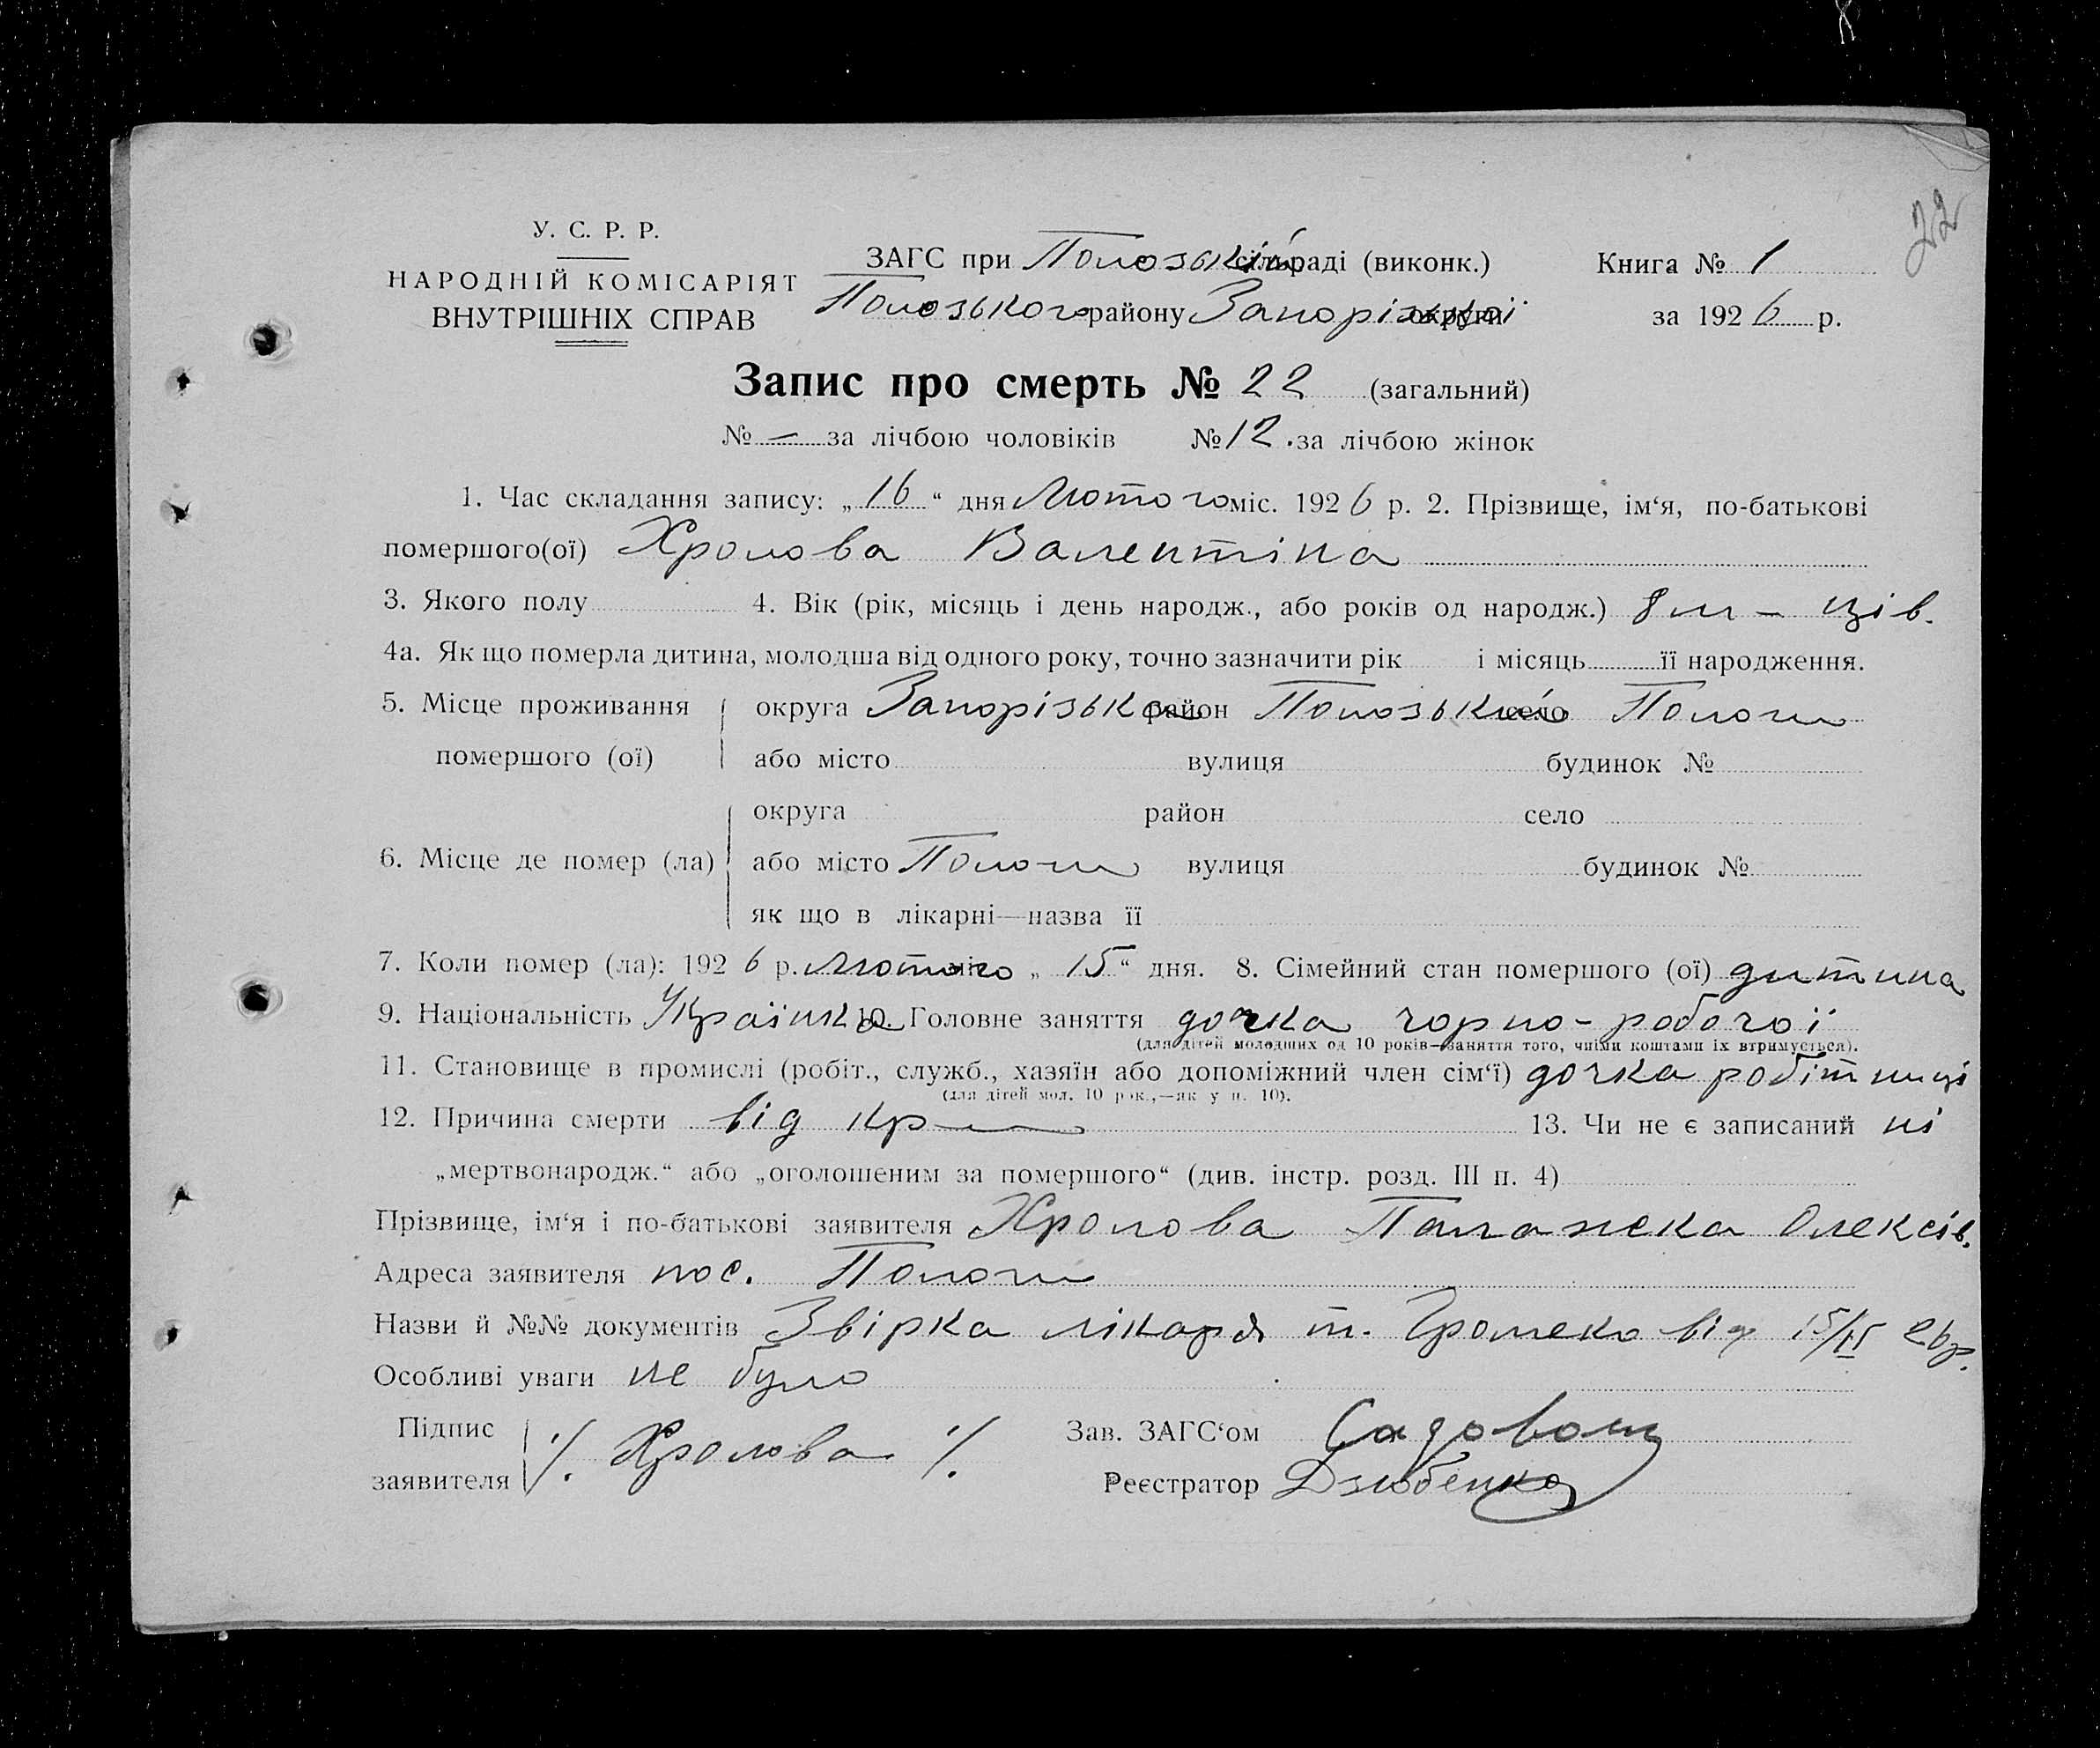 22
У. С. Р. Р.
НАРОДНІЙ КОМІСАРІЯТ
ВНУТРІШНІХ СПРАВ
ЗАГС при Пологській сільраді (виконк.)
Пологського району Запорізької округи
Книга № 1
за 1926 р.
Запис про смерть № 22 (загальний)
№ — за лічбою чоловіків № 12. за лічбою жінок
1. Час складання запису: „16“ дня Лютого міс. 1926 р. 2. Прізвище, ім‘я, по-батькові
помершого(ої) Хролова Валентіна
3. Якого полу 4. Вік (рік, місяць і день народж., або років од народж.) 8 м – ців.
4а. Як що померла дитина, молодша від одного року, точно зазначити рік і місяць її народження.
5. Місце проживання округа Запорізька район Пологськ село Пологи
помершого (ої) або місто вулиця будинок №
округа район село
6. Місце де помер (ла) або місто Пологи вулиця будинок №
як що в лікарні—назва її
7. Коли помер (ла): 1926 р. Лютого „15“ дня. 8. Сімейний стан помершого (ої) дитина
9. Національність Українка 10. Головне заняття дочка чорно-робочої
(для дітей молодших од 10 років—заняття того, чиїми коштами їх втримується).
11. Становище в промислі (робіт., служб., хазяїн або допоміжний член сім‘ї) дочка робітниці
(для дітей мол. 10 рок.,—як у п. 10).
12. Причина смерти від 13. Чи не є записаний ні
„мертвонародж.“ або „оголошеним за помершого“ (див. інстр. розд. III п. 4)
Прізвище, ім‘я і по-батькові заявителя Хролова Палажка Олексів.
Адреса заявителя пос. Пологи
Назви й №№ документів Звірка лікаря т. Громеко від 15/II 26р.
Особливі уваги не було
Підпис
заявителя /. Хролова /.
Зав. ЗАГС‘ом
Реєстратор Дзюбенко